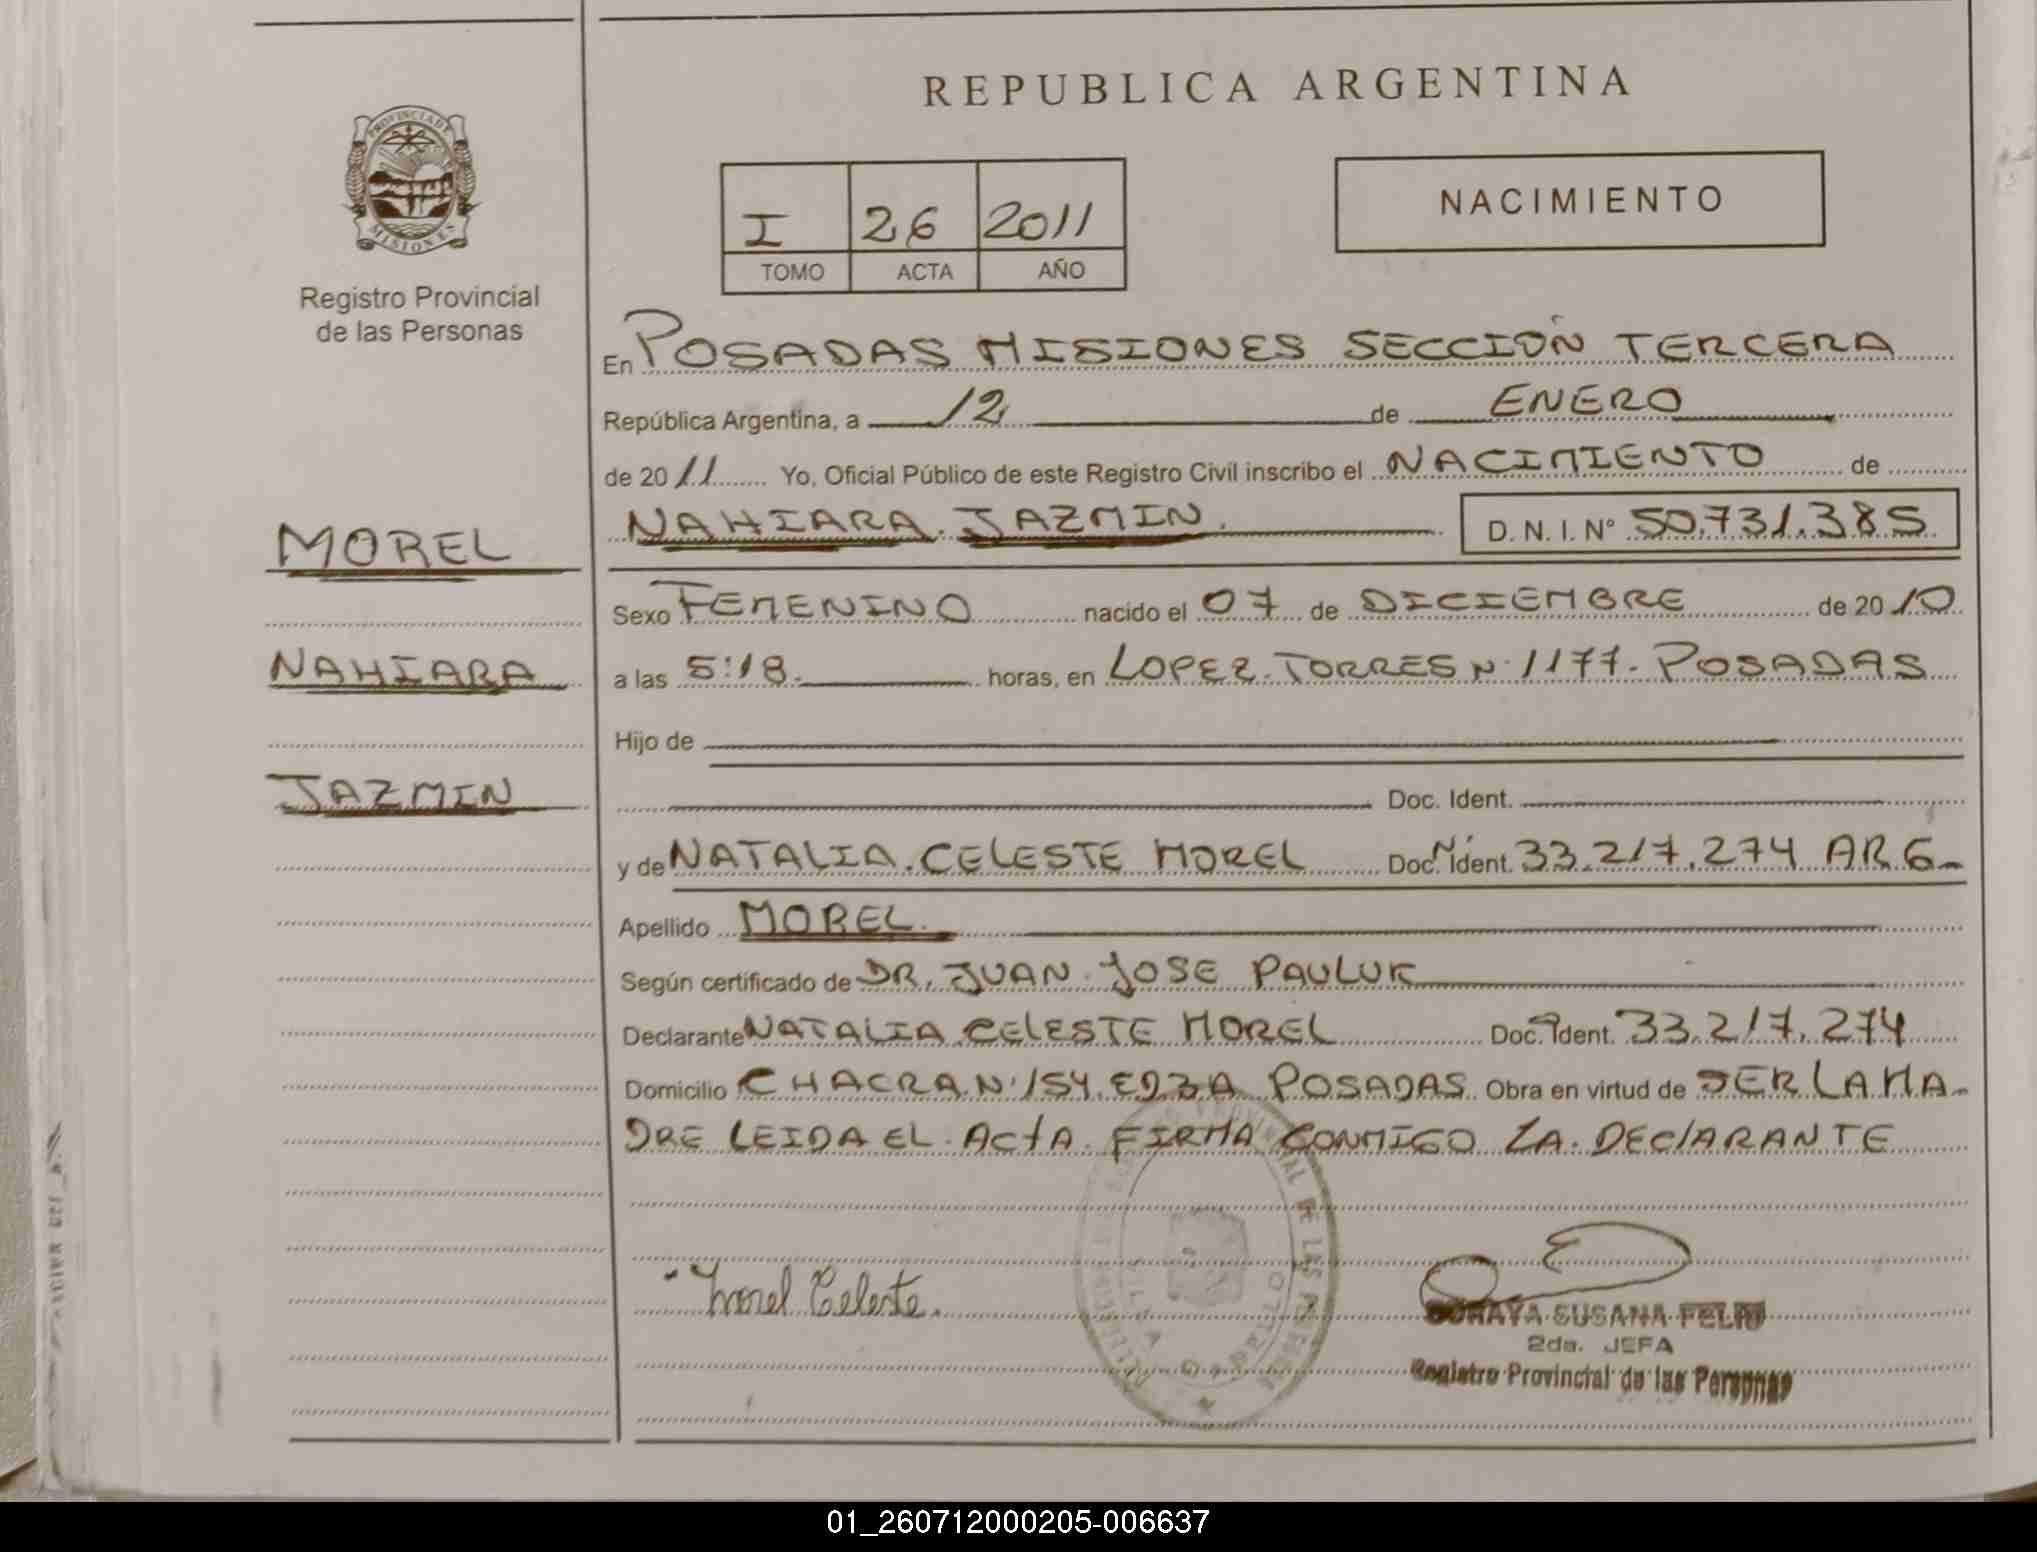 REPUBLICA ARGENTINA
PROVINCIA DE
MISIONES
Registro Provincial
de las Personas
I 26 2011
TOMO ACTA AÑO
NACIMIENTO
En POSADAS MISIONES SECCIÓN TERCERA
República Argentina, a 12 de ENERO
de 20 11 Yo, Oficial Público de este Registro Civil inscribo el NACIMIENTO de
NAHIARA JAZMIN. D. N. I. N° 50.731.385
MOREL
Sexo FEMENINO nacido el 07 de DICIEMBRE de 20 10
NAHIARA
a las 5:18. horas, en LOPEZ TORRES N 1177. POSADAS
Hijo de
JAZMIN
Doc. Ident.
y de NATALIA CELESTE MOREL Doc. Ident. 33.217.274 ARG
Apellido MOREL
Según certificado de DR. JUAN JOSE PAULUK
Declarante NATALIA CELESTE MOREL Doc. Ident. 33.217.274
Domicilio CHACRA N 154 POSADAS Obra en virtud de SER LA MA
DRE LEIDA EL ACTA FIRMA CONMIGO LA DEClARANTE
Morel Celeste.
SORAYA SUSANA
2da. JEFA
Registro Provincial de las Personas
01_260712000205-006637